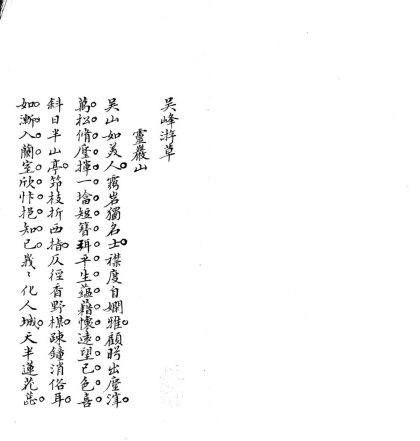 吳峰游草
靈巖山
吳山如美人靈岩獨名士襟度自嫻雅顧盼出塵滓
萬松脩麈揮一塔短簪珥平生蘊藉懷遠望已色喜
斜日半山亭筇枝折西指仄徑香野樵疎鐘消俗耳
如漸入蘭室欣忭挹知已峩〻化人城天半蓮花蕊